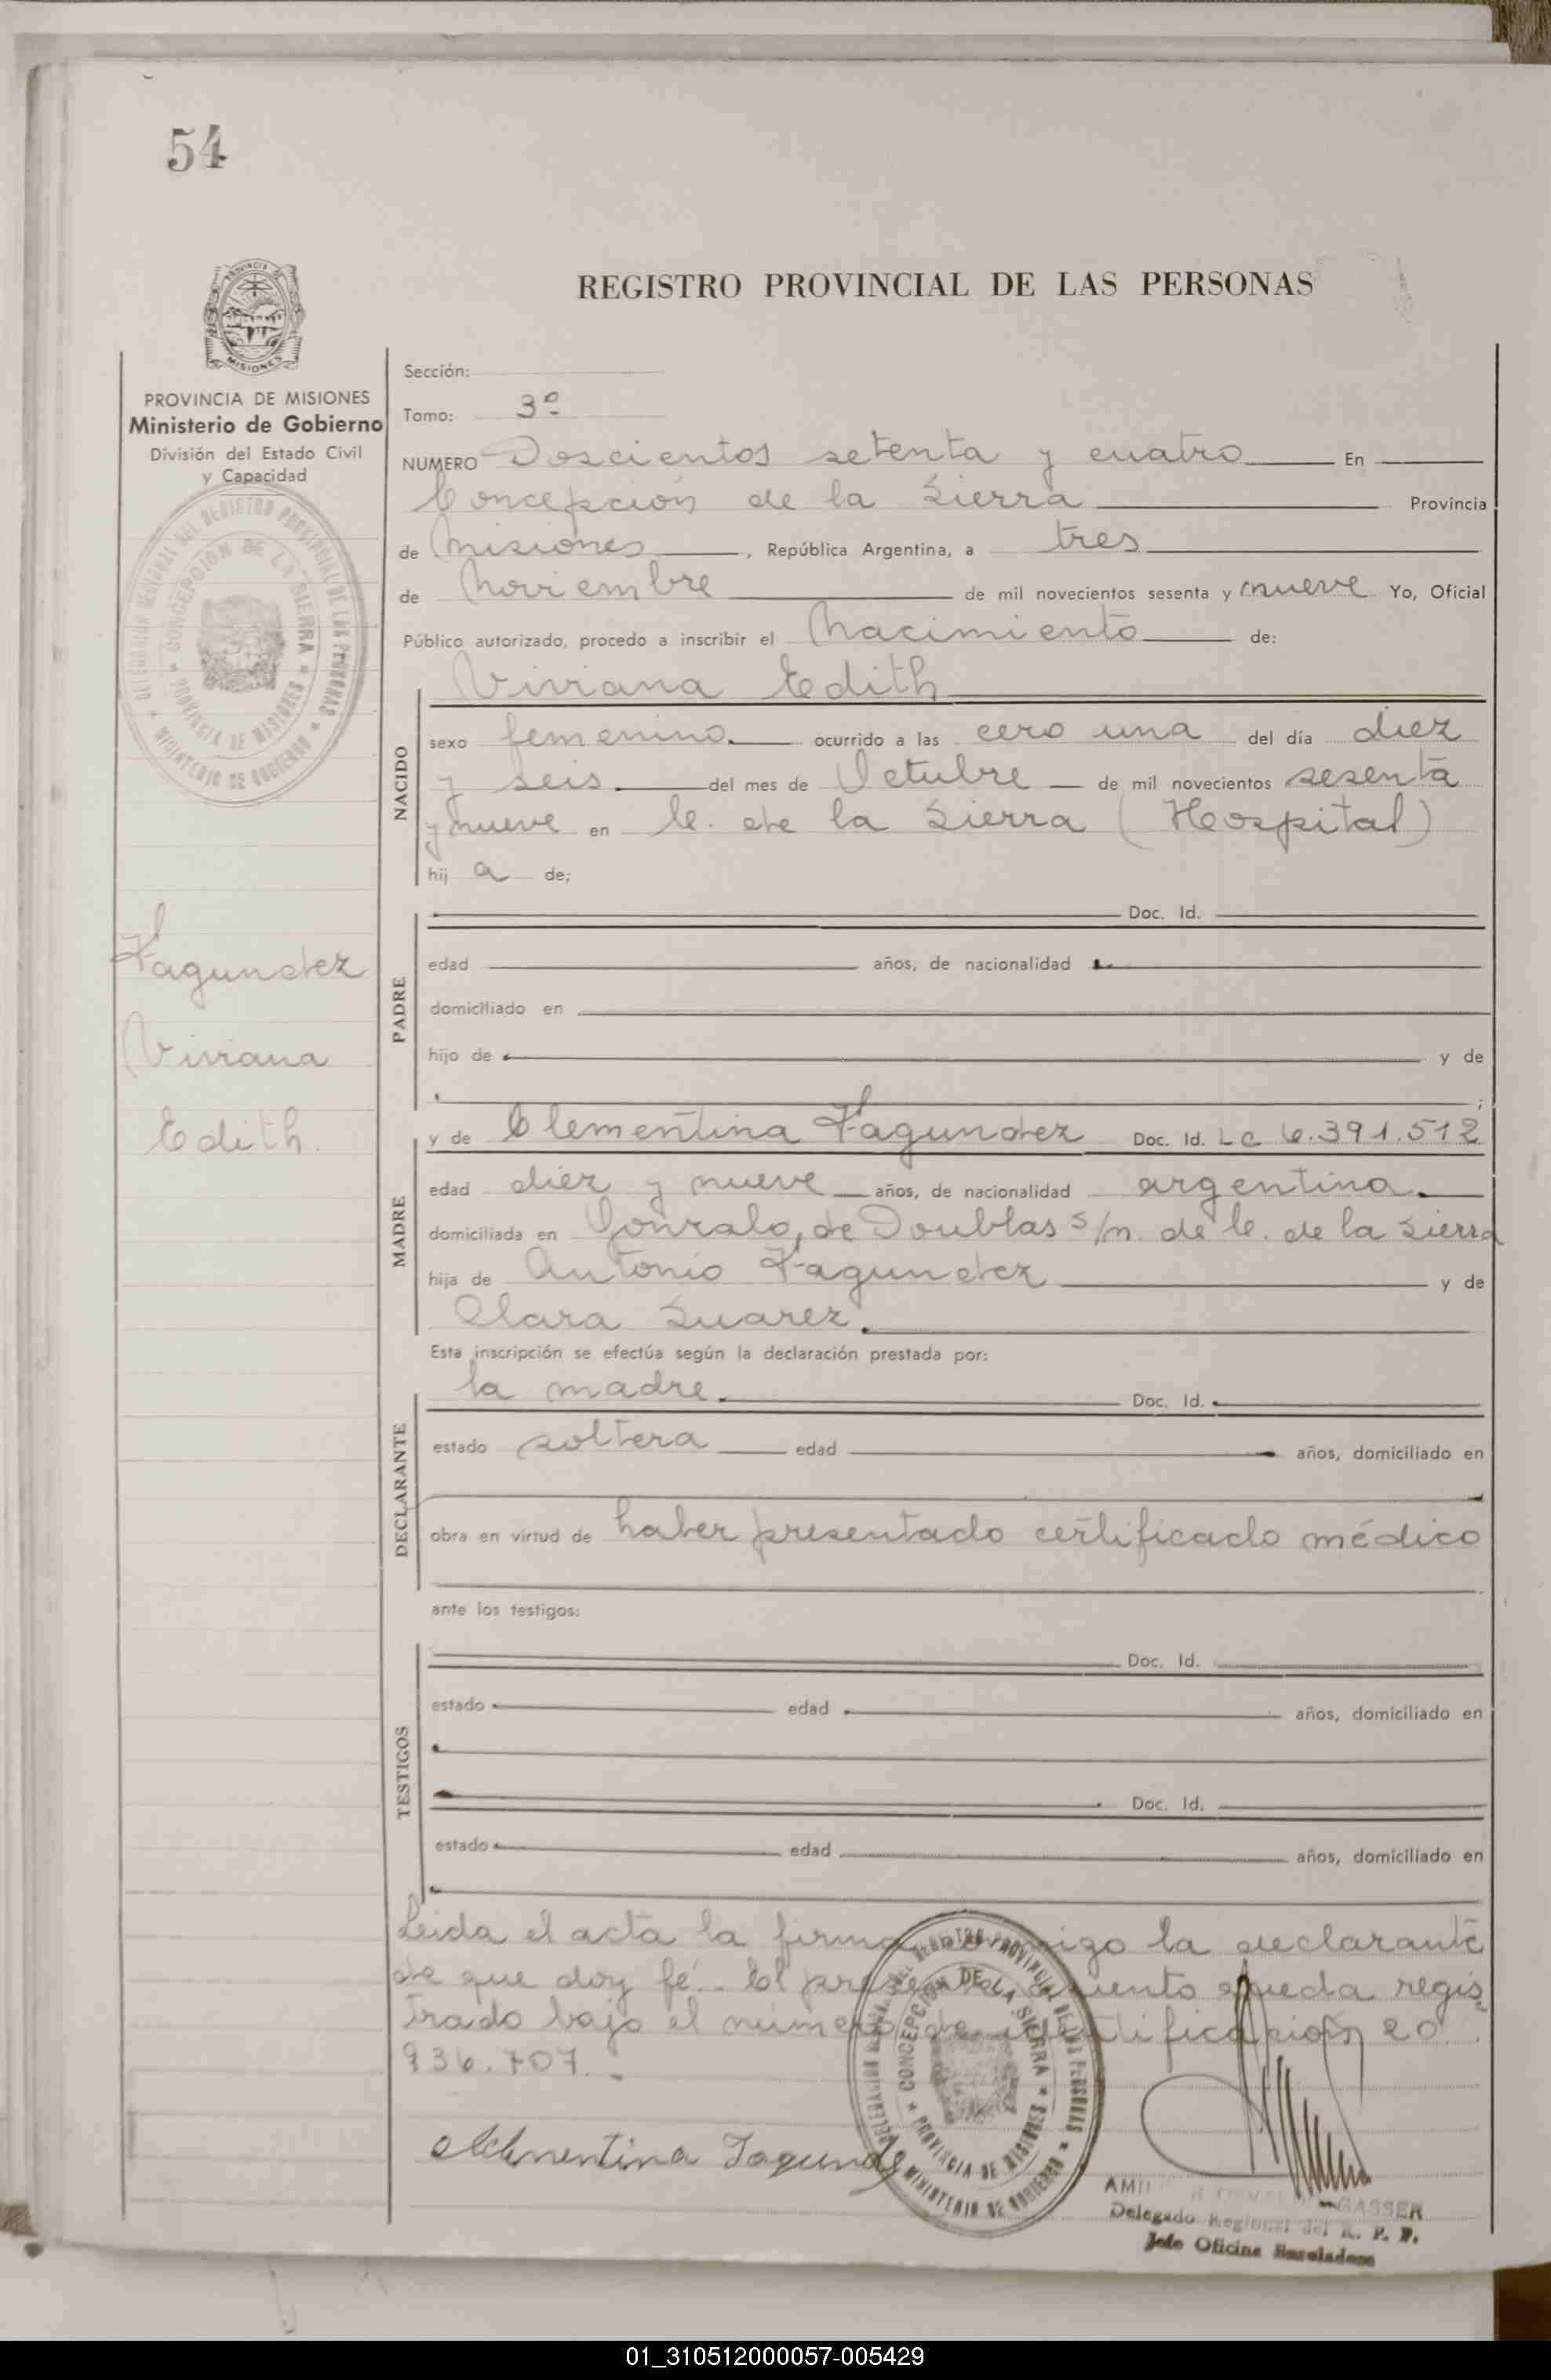 54
REGISTRO PROVINCIAL DE LAS PERSONAS
PROVINCIA DE MISIONES
Ministerio de Gobierno
División del Estado Civil
y Capacidad
DELEGACION REGIONAL DEL REGISTRO PROVINCIAL DE LAS PERSONAS * MINISTERIO DE GOBIERNO *
CONCEPCION DE LA SIERRA * PROVINCIA DE MISIONES *
Fagundez
Viviana
Edith.
Sección:
Tomo: 3º
NUMERO Doscientos setenta y cuatro En
Concepción de la Sierra Provincia
de Misiones, República Argentina, a tres
de Noviembre de mil novecientos sesenta y nueve Yo, Oficial
Público autorizado, procedo a inscribir el Nacimiento de:
NACIDO
Viviana Edith
sexo femenino. ocurrido a las cero una del día diez
y seis. del mes de Octubre de mil novecientos sesenta
y nueve en C. de la Sierra (Hospital)
hij a de;
PADRE
Doc. Id.
edad años, de nacionalidad
domiciliado en
hijo de y de
;
MADRE
y de Clementina Fagundez Doc. Id. LC 6.391.512
edad diez y nueve años, de nacionalidad argentina.
domiciliada en Gonzalo, de Doublas s/n. de C. de la Sierra
hija de Antonio Fagundez y de
Clara Suarez.
Esta inscripción se efectúa según la declaración prestada por:
DECLARANTE
la madre. Doc. Id.
estado soltera edad años, domiciliado en
obra en virtud de haber presentado certificado médico
ante los testigos:
TESTIGOS
Doc. Id.
estado edad años, domiciliado en
Doc. Id.
estado edad años, domiciliado en
Leida el acta la firma conmigo la declarante
de que doy fé.- El presente queda regis
trado bajo el número de identificación 20
936.707.-
Clementina Fagundez
DELEGACION REGIONAL DEL REGISTRO PROVINCIAL DE LAS PERSONAS * MINISTERIO DE GOBIERNO *
CONCEPCION DE LA SIERRA * PROVINCIA DE MISIONES *
GASSER
Delegado Regional del R. P. P.
Jefe Oficina
01_310512000057-005429